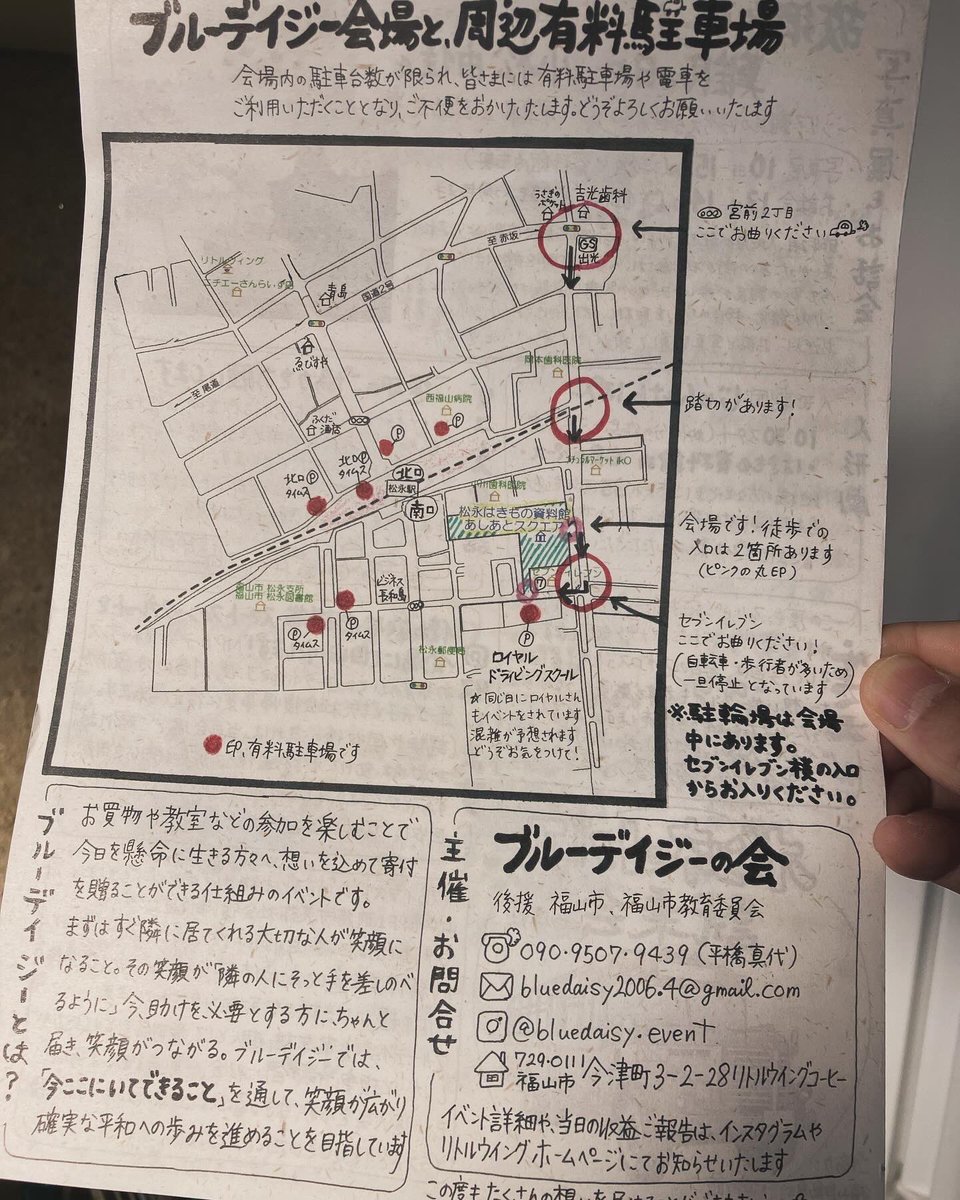 ブルーデイジー会場と、周辺有料駐車場
会場内の駐車台数が限られ、皆さまには有料駐車場や電車を
ご利用いただくこととなり、ご不便をおかけいたします。どうぞよろしくお願いいたします
うさぎのポケット
吉光歯科
至 赤坂
GS
出光
宮前2丁目
ここでお曲りください
リトルウィング
ニチエーさんらいず店
青島
国道2号
ゑびすや
至 尾道
岡本歯科医院
西福山病院
踏切があります!
ふくだ酒店
P
P
北口P
タイムス
北口P
タイムス
北口
松永駅
南口
歯科医院
松永はきもの資料館
あしあとスクエア
会場です!徒歩での
入口は2箇所あります
(ピンクの丸EP)
福山市 松永支所
福山市 松永図書館
ビジネス
長和島
セブンイレブン
P
タイムス
P
タイムス
P
松永郵便局
ロイヤル
ドライビングスクール
セブンイレブン
ここでお曲りください!
(自転車・歩行者が多いため
一旦停止となっています)
☆同じ日にロイヤルさん
もイベントをされています
混雑が予想されます
どうぞお気をつけて!
※駐輪場は会場
中にあります。
セブンイレブン横の入口
からお入りください。
EP、有料駐車場です
ブルーデイジーとは?
お買物や教室などの参加を楽しむことで
今日を懸命に生きる方々へ、想いを込めて寄付
を贈ることができる仕組みのイベントです。
まずはすぐ隣に居てくれる大切な人が笑顔に
なること。その笑顔が「隣の人にそっと手を差しのべ
るように」今、助けを必要とする方に、ちゃんと
届き、笑顔がつながる。ブルーデイジーでは、
「今ここにいてできること」を通して、笑顔が広がり
確実な平和への歩みを進めることを目指しています
主催・お問合せ
ブルーデイジーの会
後援 福山市、福山市教育委員会
090・9507・9439(平橋真代)
bluedaisy2006.4@gmail.com
@bluedaisy.event
729-0111
福山市 今津町3-2-28リトルウイングコーヒー
イベント詳細や、当日の収益ご報告は、インスタグラムや
リトルウイング ホームページにてお知らせいたします